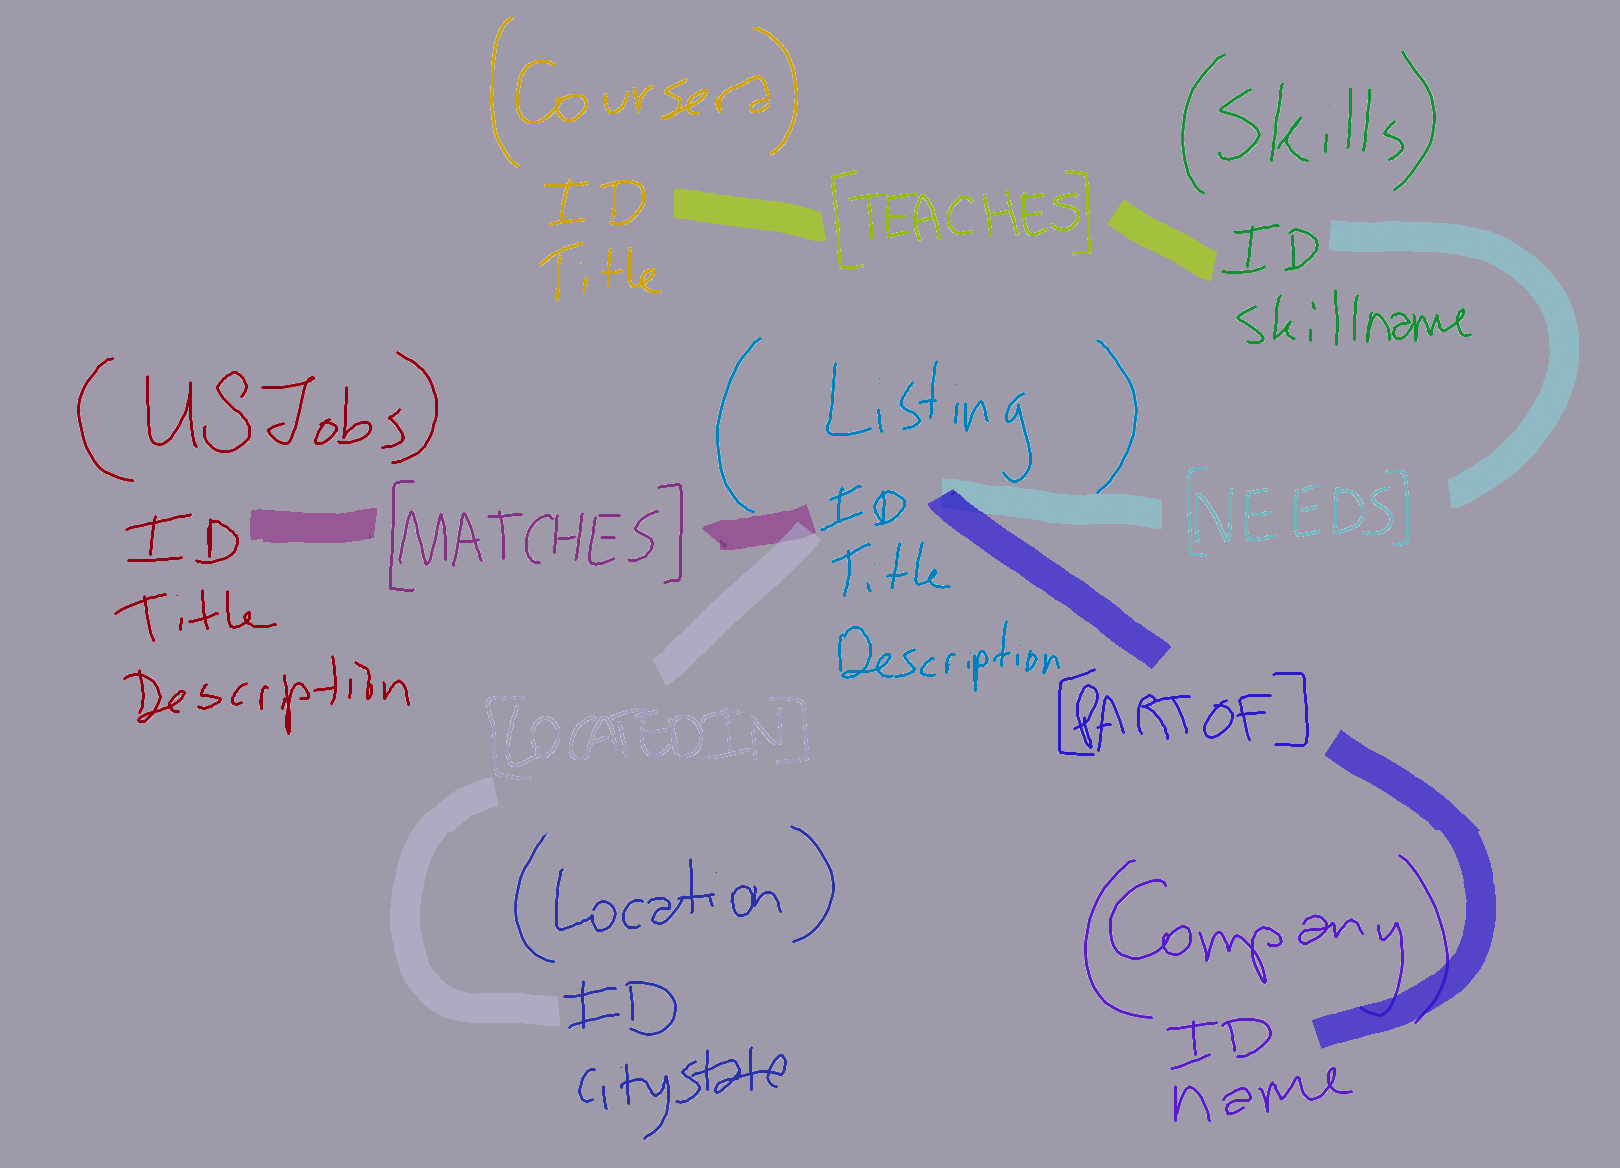 (Coursera)
ID
Title
[TEACHES]
(Skills)
ID
skillname
(USJobs)
ID
Title
Description
[MATCHES]
(Listing)
ID
Title
Description
[NEEDS]
[LOCATEDIN]
[PARTOF]
(Location)
ID
citystate
(Company)
ID
name